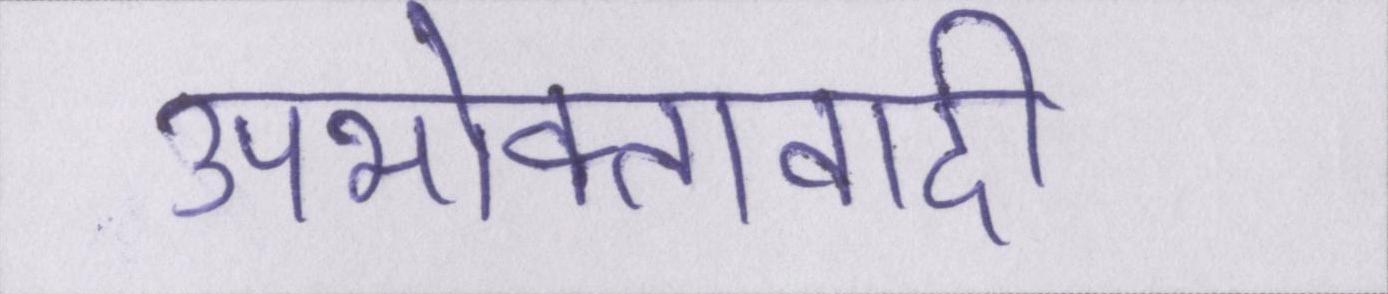 उपभोक्तावादी